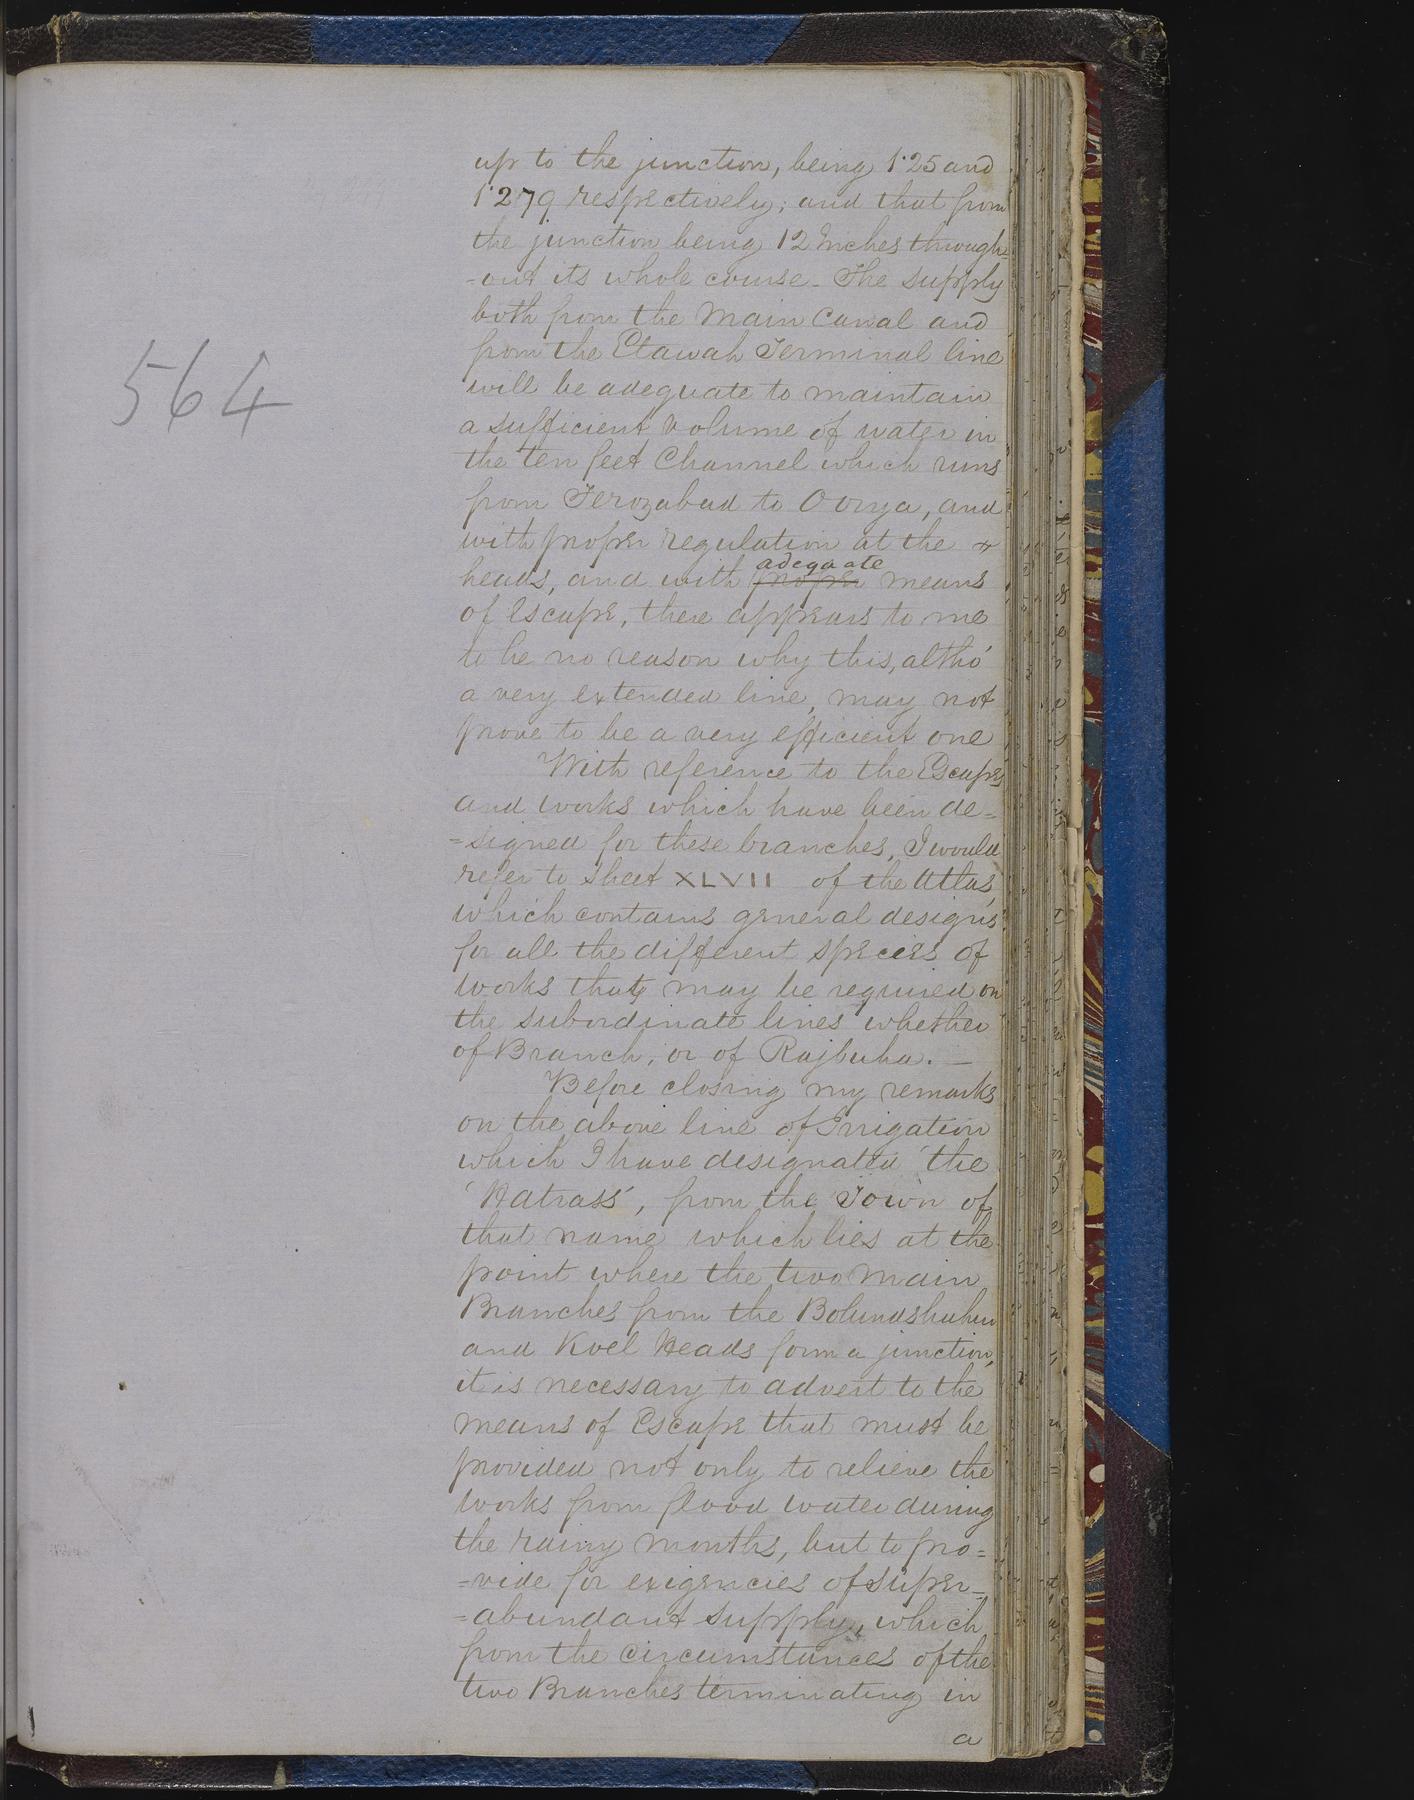 up to the junction, being 1·25 and
1·279 respectively; and that from
the junction being 12 Inches through=
-out its whole course. The supply
both from the Main Canal and
from the Etawah Terminal line
will be adequate to maintain
a sufficient volume of water in
the ten feet Channel which runs
from Ferozabad to Oorya, and
with proper regulation at the
adequate
heads, and with proper means
of Escape, there appears to me
to be no reason why this, altho'
a very extended line, may not
prove to be a very efficient one
With reference to the Escapes
and works which have been de=
=signed for these branches, I would
refer to sheet XLVII of the Atlas,
which contains general designs
for all the different species of
works that may be required on
the subordinate lines whether
of Branch, or of Rajbuha. —
Before closing my remarks
on the above line of Irrigation
which I have designated 'the
'Hatrass', from the Town of
that name which lies at the
point where the two main
Branches from the Bolundshuhur
and Koel Heads form a junction,
it is necessary to advert to the
means of Escape that must be
provided not only to relieve the
works from flood water during
the rainy months, but to pro=
=vide for exigencies of super-
=abundant supply, which
from the circumstances of the
two Branches terminating in
a
564